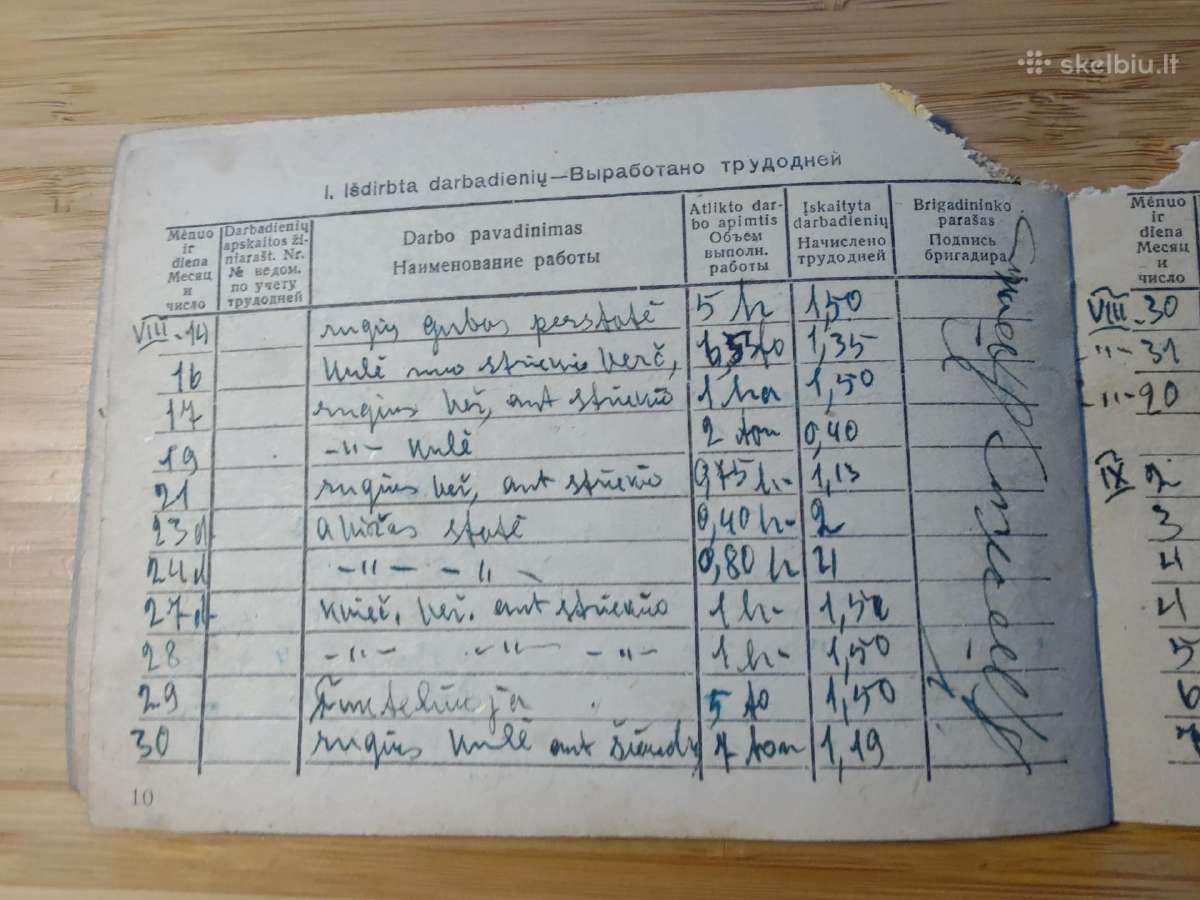 skelbiu.lt
I. Išdirbta darbadienių—Выработано трудодней
Mėnuo ir diena Месяц и число
Darbadienių apskaitos žiniarašt. Nr. № ведом. по учету трудодней
Darbo pavadinimas Наименование работы
Atlikto darbo apimtis Объем выполн. работы
Įskaityta darbadienių Начислено трудодней
Brigadininko parašas Подпись бригадира
VIII-14 rugių gubas perstatė 5 h 1,50
16 kulė nuo 1,35
17 rugius vež, ant 1 ha 1,50
19 -"- kulė 2 ton 0,40
21 rugius vež, ant 0,75 h- 1,13
23 statė 0,40 h- 2
24 -"- -"- 0,80 h 4
27 kvieč. vež. ant 1 h- 1,50
28 -"- -"- -"- 1 h- 1,50
29 5 to 1,50
30 rugius kulė ant 7 ton 1,19
10
Mėnuo ir diena Месяц и число
VIII-30
-"-31
-"-20
IX 2
3
4
4
5
6
7